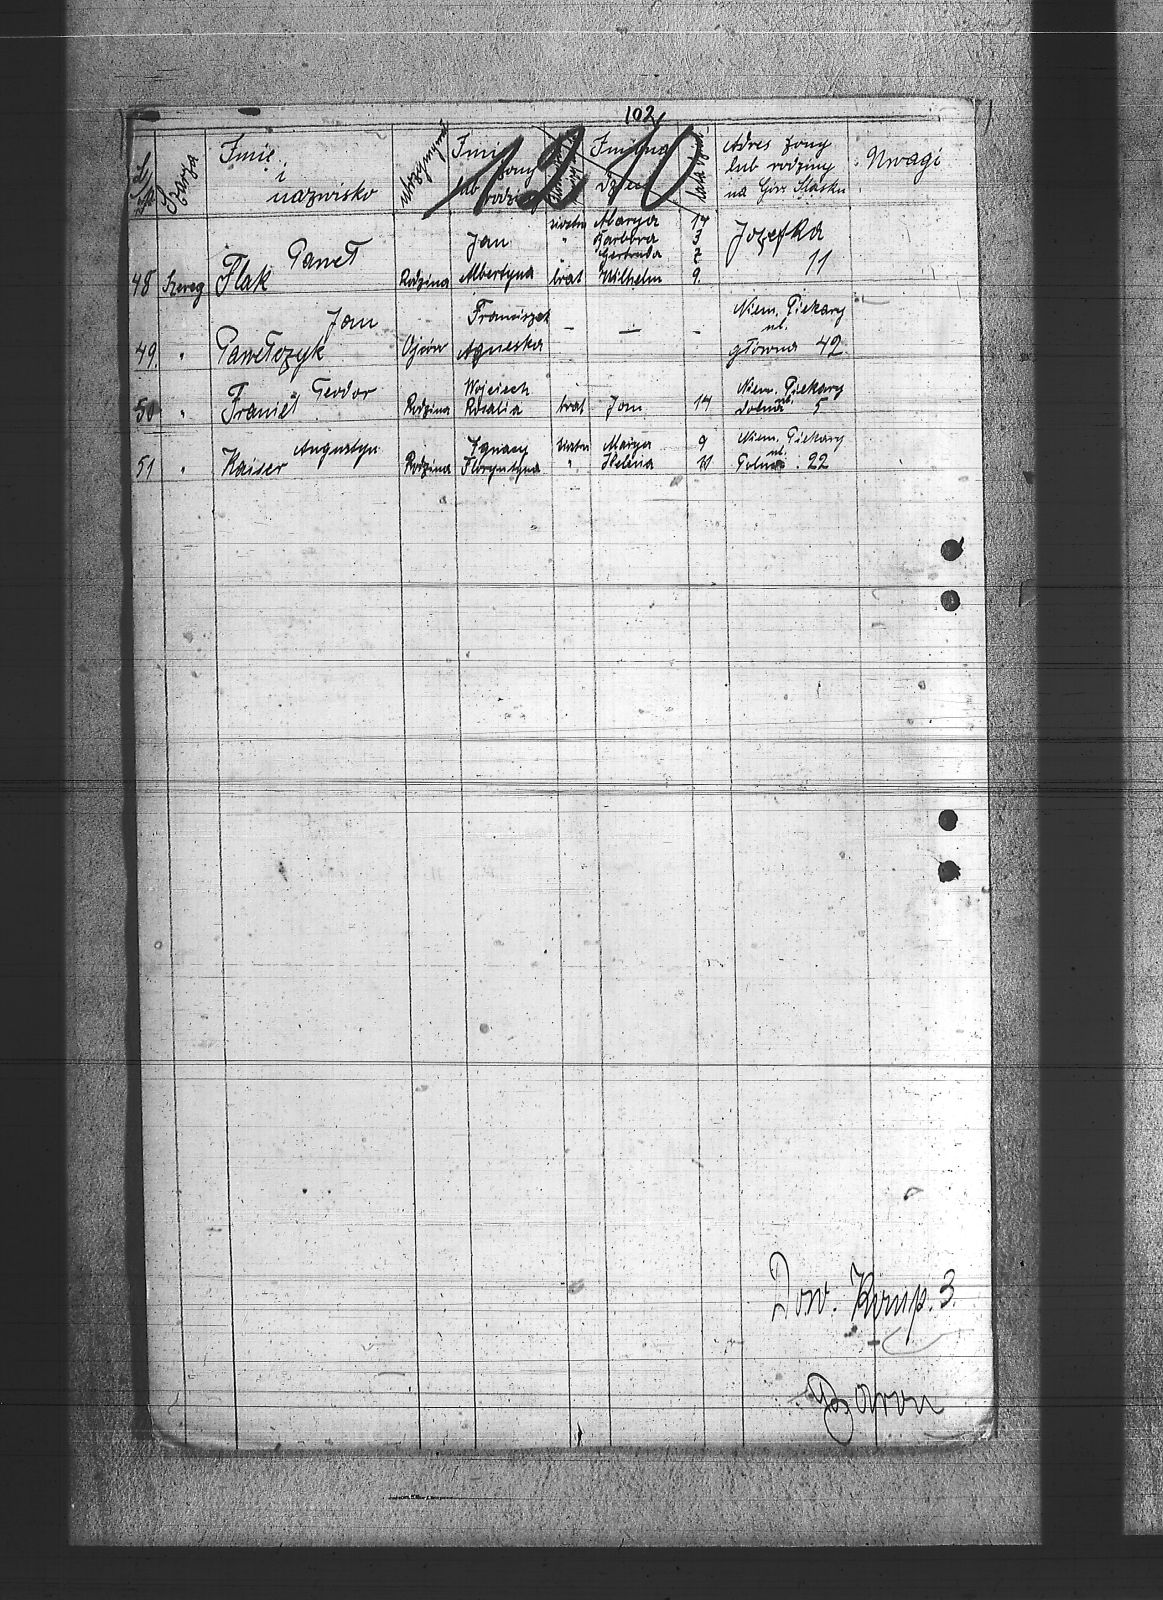 102
1210
L.p. Szarża Imię i nazwisko Imię żony lub rodziny Imiona dzieci Adres żony lub rodziny na Gór. Śląsku Uwagi
48 Szereg Flak Paweł Rodzina Jan Albertyna siostra Marya 14 Józefka 11
" Barbara 3
" Gertruda 7
brat Wilhelm 9
49. " Pawełczyk Jan Ojców Franciszek Agneska — — - Niem. Piekary ul. główna 42
50 " Franiel Teodor Rodzina Wojciech Rosalia brat Jan 14 Niem. Piekary ul. dolna 5
51 " Kaiser Augustyn Rodzina Ignacy Floryntyna siostra Marya 9 Niem. Piekary ul. Polna 22
" Helena 11
Dow. Komp. 3.
Baron